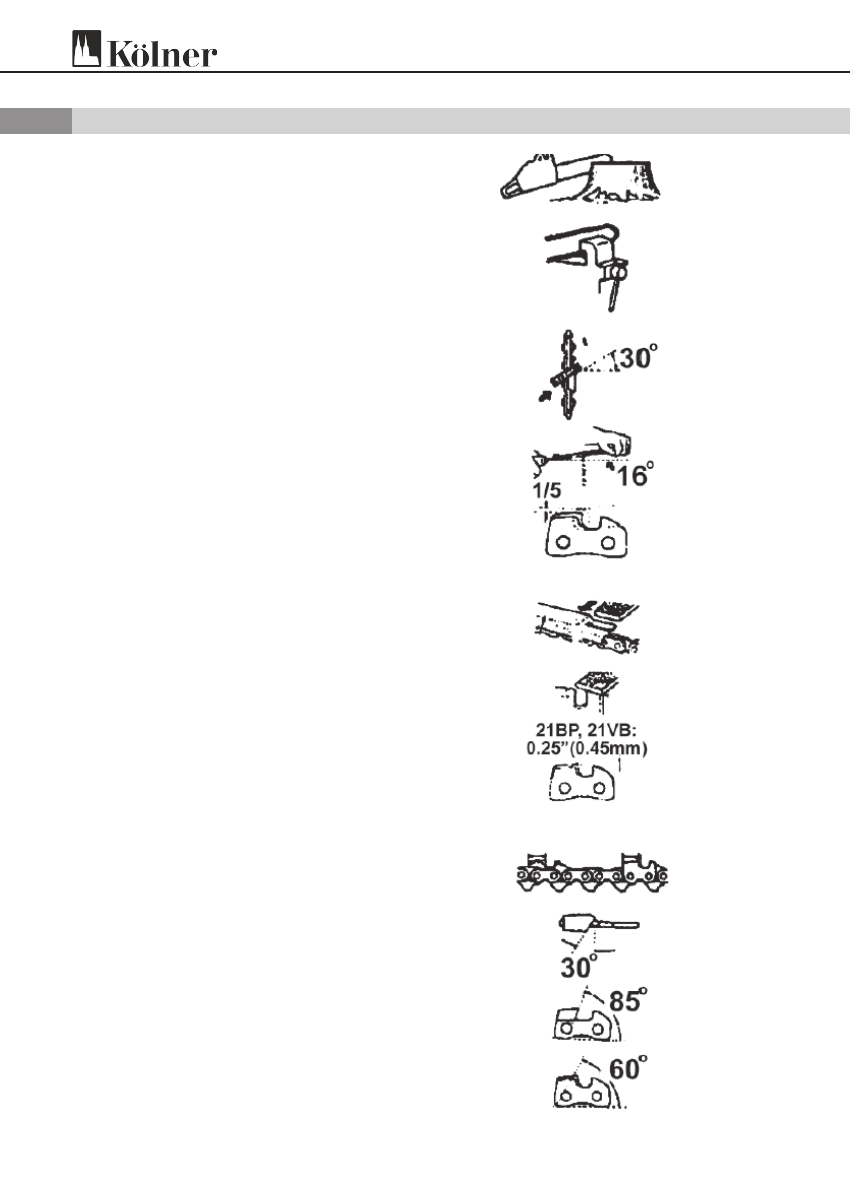 Kölner
30°
16°
1/5
21BP, 21VB:
0.25”(0.45mm)
30°
85°
60°